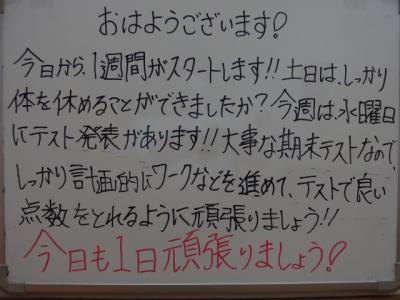 おはようございます!
今日から、1週間がスタートします!!土日は、しっかり
体を休めることができましたか?今週は、水曜日
にテスト発表があります!!大事な期末テストなので、
しっかり計画的にワークなどを進めて、テストで良い
点数をとれるように頑張りましょう!!
今日も1日頑張りましょう!